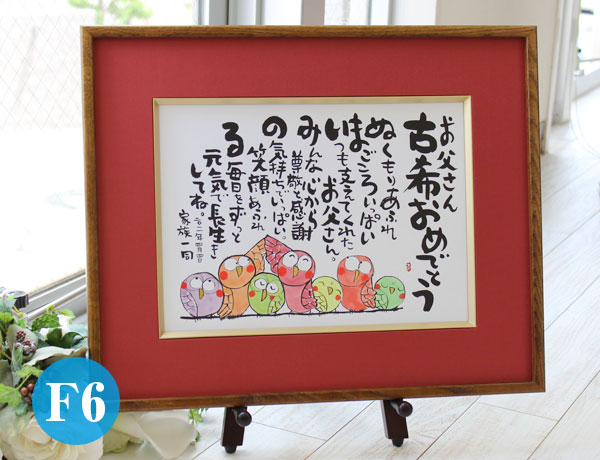 お父さん
古希おめでとう
ぬくもりあふれ
まごころいっぱい
いつも支えてくれた
お父さん。
みんな心から
尊敬と感謝
の気持ちでいっぱい。
笑顔あふれ
る毎日をずっと
元気で長生き
してね。
家族一同
F6